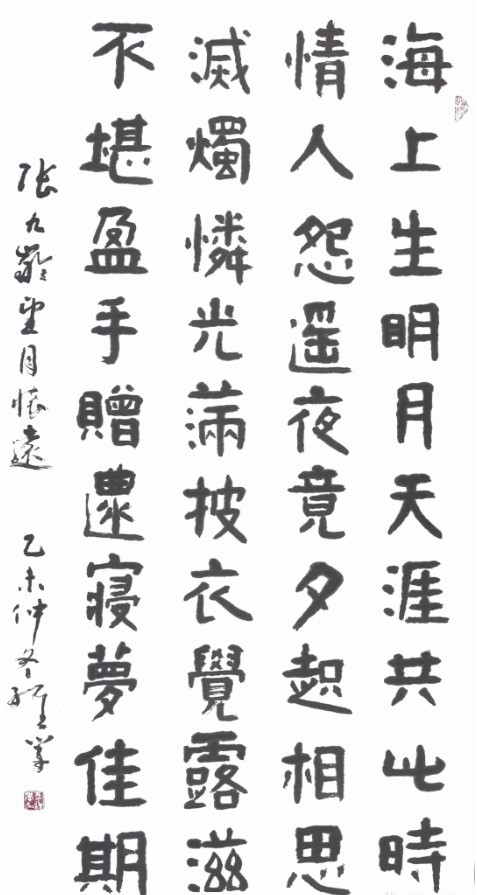 海上生明月天涯共此時
情人怨遥夜竟夕起相思
滅燭憐光滿披衣覺露滋
不堪盈手贈還寢夢佳期
張九齡望月懷遠
乙未仲冬